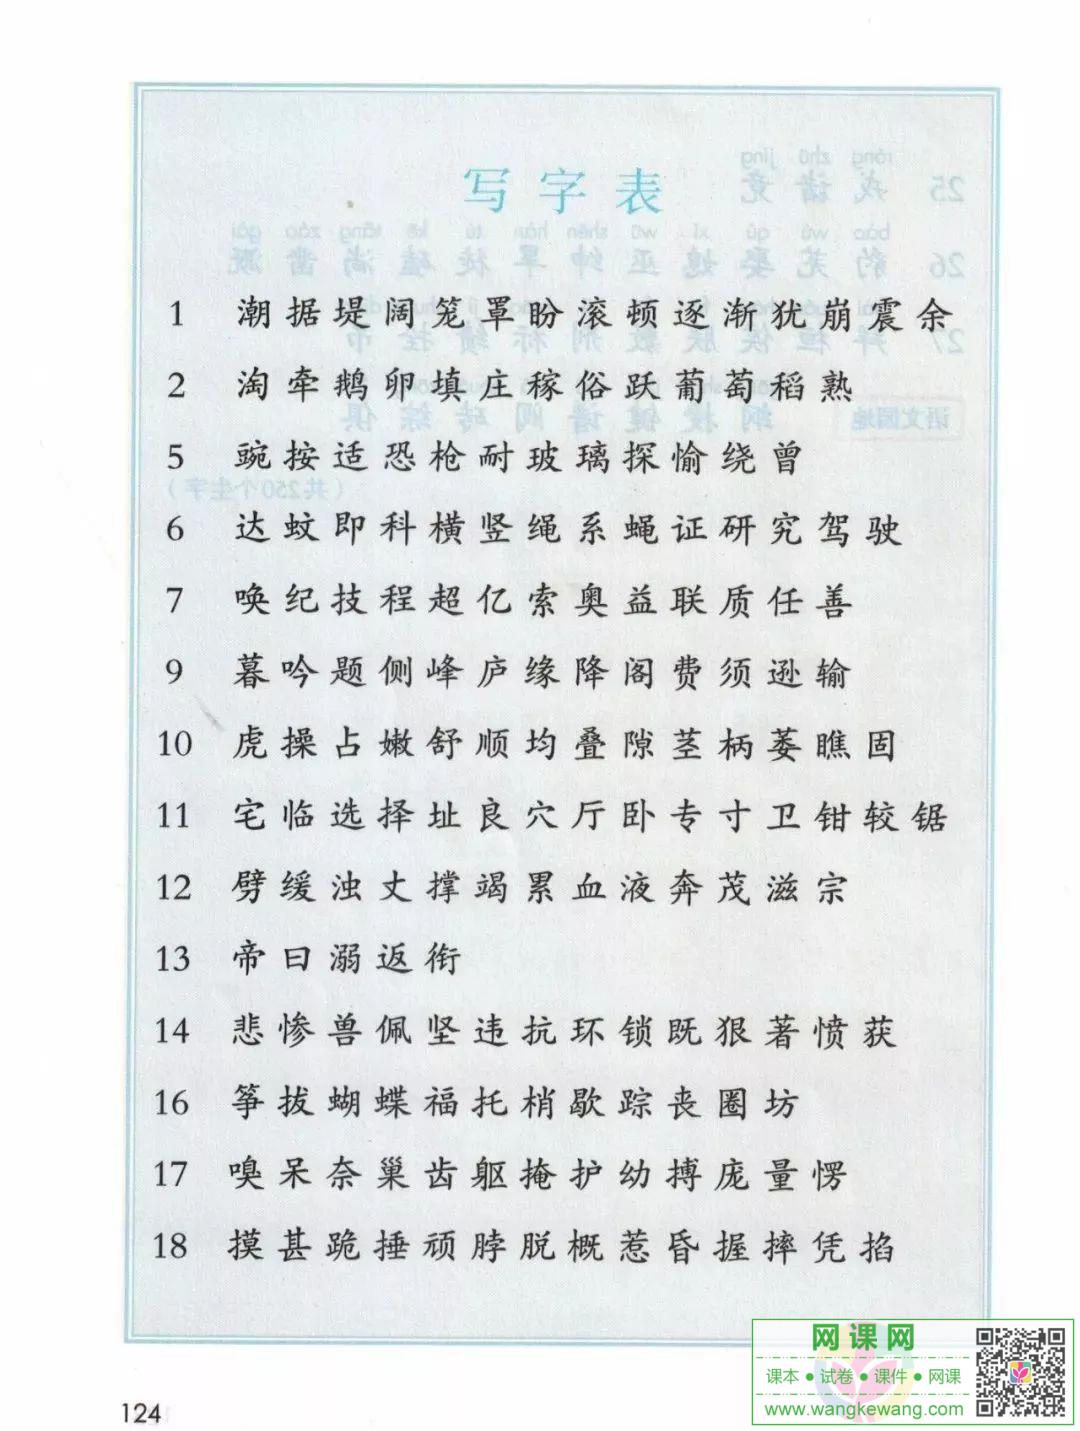 写字表
1 潮据堤阔笼罩盼滚顿逐渐犹崩震余
2 淘牵鹅卵填庄稼俗跃葡萄稻熟
5 豌按适恐枪耐玻璃探愉绕曾
6 达蚊即科横竖绳系蝇证研究驾驶
7 唤纪技程超亿索奥益联质任善
9 暮吟题侧峰庐缘降阁费须逊输
10 虎操占嫩舒顺均叠隙茎柄萎瞧固
11 宅临选择址良穴厅卧专寸卫钳较锯
12 劈缓浊丈撑竭累血液奔茂滋宗
13 帝曰溺返衔
14 悲惨兽佩坚违抗环锁既狠著愤获
16 筝拔蝴蝶福托梢歇踪丧圈坊
17 嗅呆奈巢齿躯掩护幼搏庞量愣
18 摸甚跪捶顽脖脱概惹昏握摔凭掐
124
网课网
课本●试卷●课件●网课
www.wangkewang.com